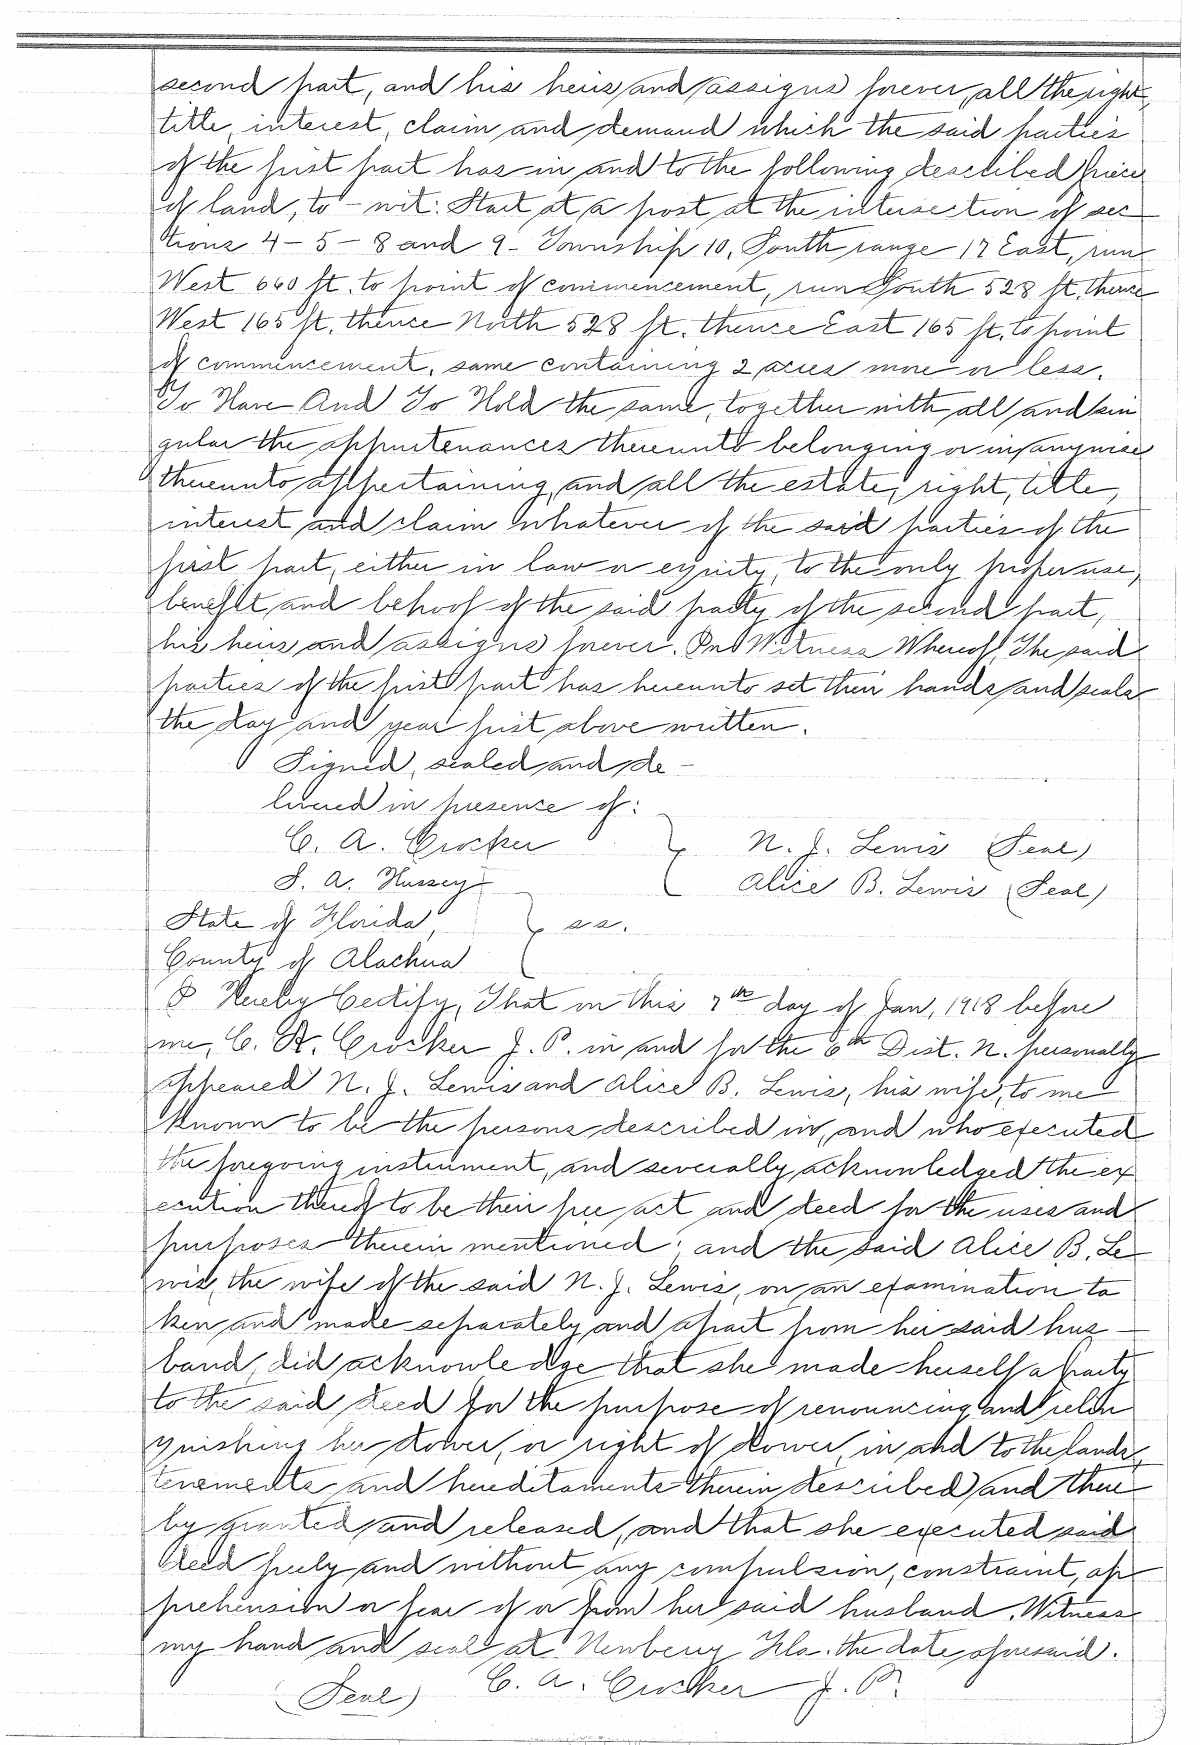 second part, and his heirs and assigns forever, all the right,
title, interest, claim and demand which the said parties
of the first part has in and to the following described piece
of land, to-wit: Start at a post at the intersection of sec
tions 4-5-8 and 9- Township 10, South range 17 East, run
West 660 ft. to point of commencement, run South 528 ft. thence
West 165 ft. thence North 528 ft. thence East 165 ft. to point
of commencement, same containing 2 acres more or less.
To Have And To Hold the same, together with all and sin
gular the appurtenances thereunto belonging or in anywise
thereunto appertaining, and all the estate, right, title,
interest and claim whatever of the said parties of the
first part, either in law or equity, to the only proper use,
benefit, and behoof of the said party of the second part,
his heirs and assigns forever. In Witness Whereof, The said
parties of the first part has hereunto set their hands and seals
the day and year first above written.
Signed, sealed and de-
livered in presence of:
C. A. Crocker } N. J. Lewis (Seal)
S. A. Hussey Alice B. Lewis (Seal)
State of Florida, } ss.
County of Alachua
I Hereby Certify, That on this 7th day of Jan, 1918 before
me, C. A. Crocker J. P. in and for the 6th Dist. N. personally
appeared N. J. Lewis and Alice B. Lewis, his wife, to me
known to be the persons described in, and who executed
the foregoing instrument, and severally acknowledged the ex
ecution thereof to be their free act and deed for the uses and
purposes therein mentioned; and the said Alice B. Le
wis, the wife of the said N. J. Lewis, on an examination ta
ken and made separately and apart from her said hus-
band, did acknowledge that she made herself a party
to the said deed for the purpose of renouncing and relin
quishing her dower, or right of dower, in and to the lands,
tenements and hereditaments therein described and there
by granted and released, and that she executed said
deed freely and without any compulsion, constraint, ap
prehension or fear of or from her said husband. Witness
my hand and seal at Newberry Fla. the date aforesaid.
(Seal) C. A. Crocker J. P.